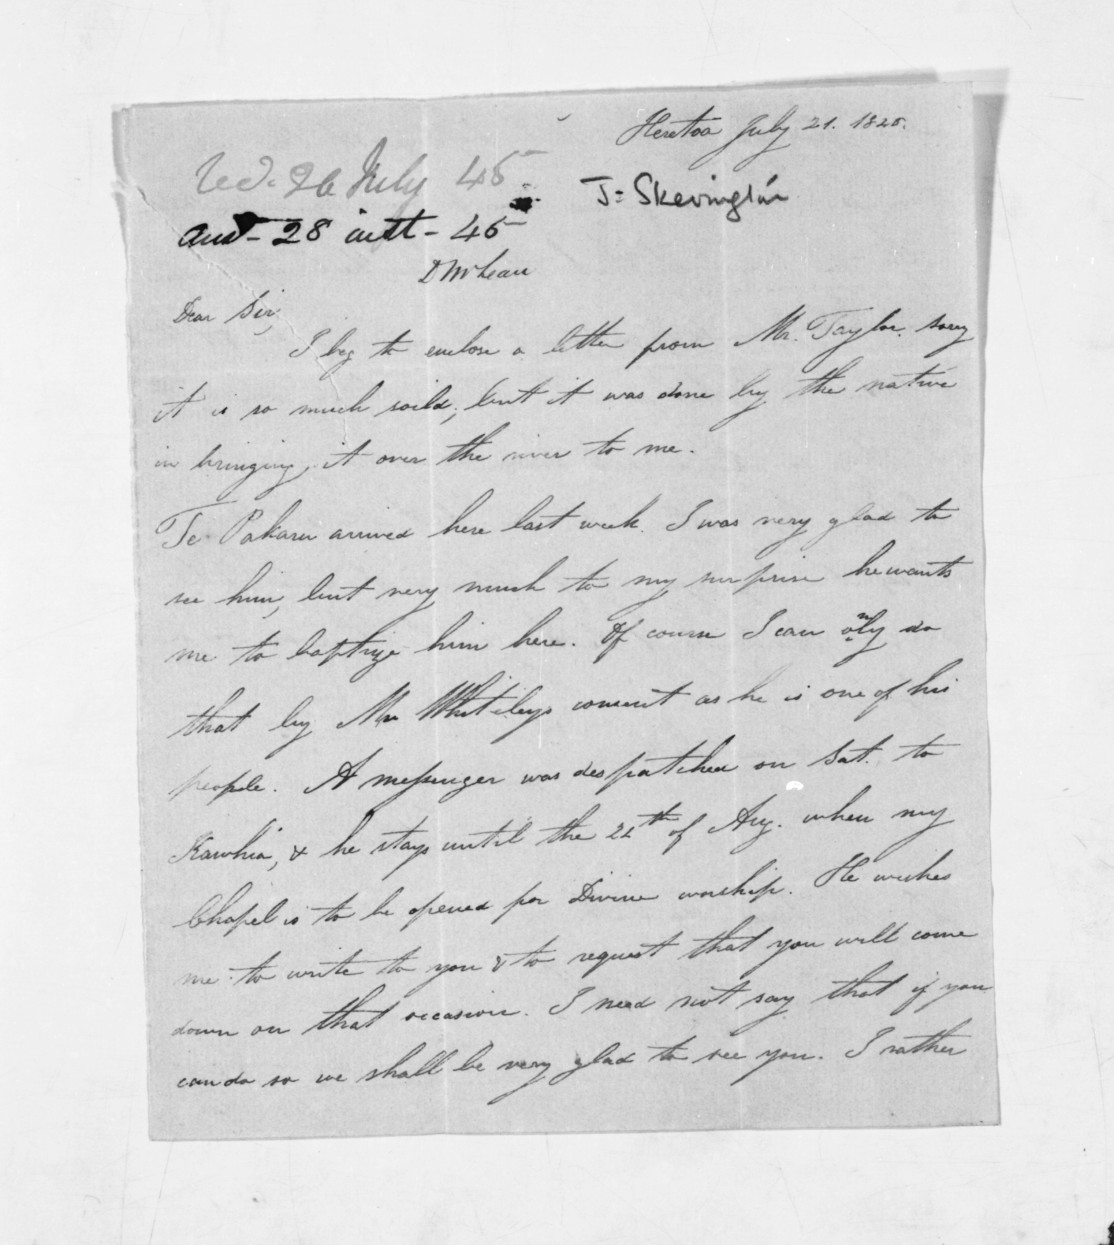 Heretoa July 21. 1845.
Red. 26 July 45
J= Skevington
ansd - 28 inst - 45
D McLean
Dear Sir,
I beg to enclose a letter from Mr. Taylor. sorry
it is so much soild, but it was done by the native
in bringing it over the river to me.
Te Pakaru arrived here last week. I was very glad to
see him, but very much to my surprise he wants
me to baptize him here. Of course I can only do
that by Mr Whiteleys consent as he is one of his
people. A messenger was despatched on Sat. to
Kawhia, & he stays until the 24th of Aug. when my
Chapel is to be opened for Divine worship. He wishes
me to write to you & to request that you will come
down on that occasion. I need not say that if you
can do so we shall be very glad to see you. I rather